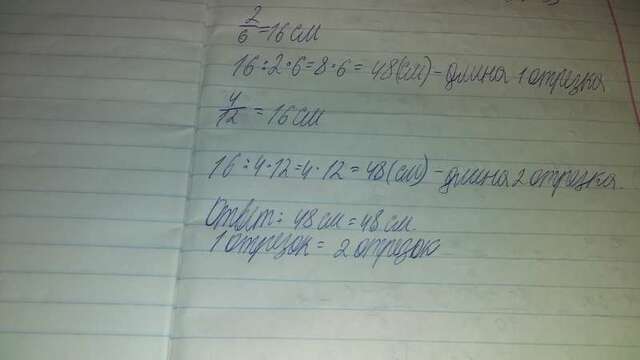 2/6 = 16 см
16 : 2 · 6 = 8 · 6 = 48 (см) - длина 1 отрезка
4/12 = 16 см
16 : 4 · 12 = 4 · 12 = 48 (см) - длина 2 отрезка.
Ответ: 48 см = 48 см.
1 отрезок = 2 отрезок